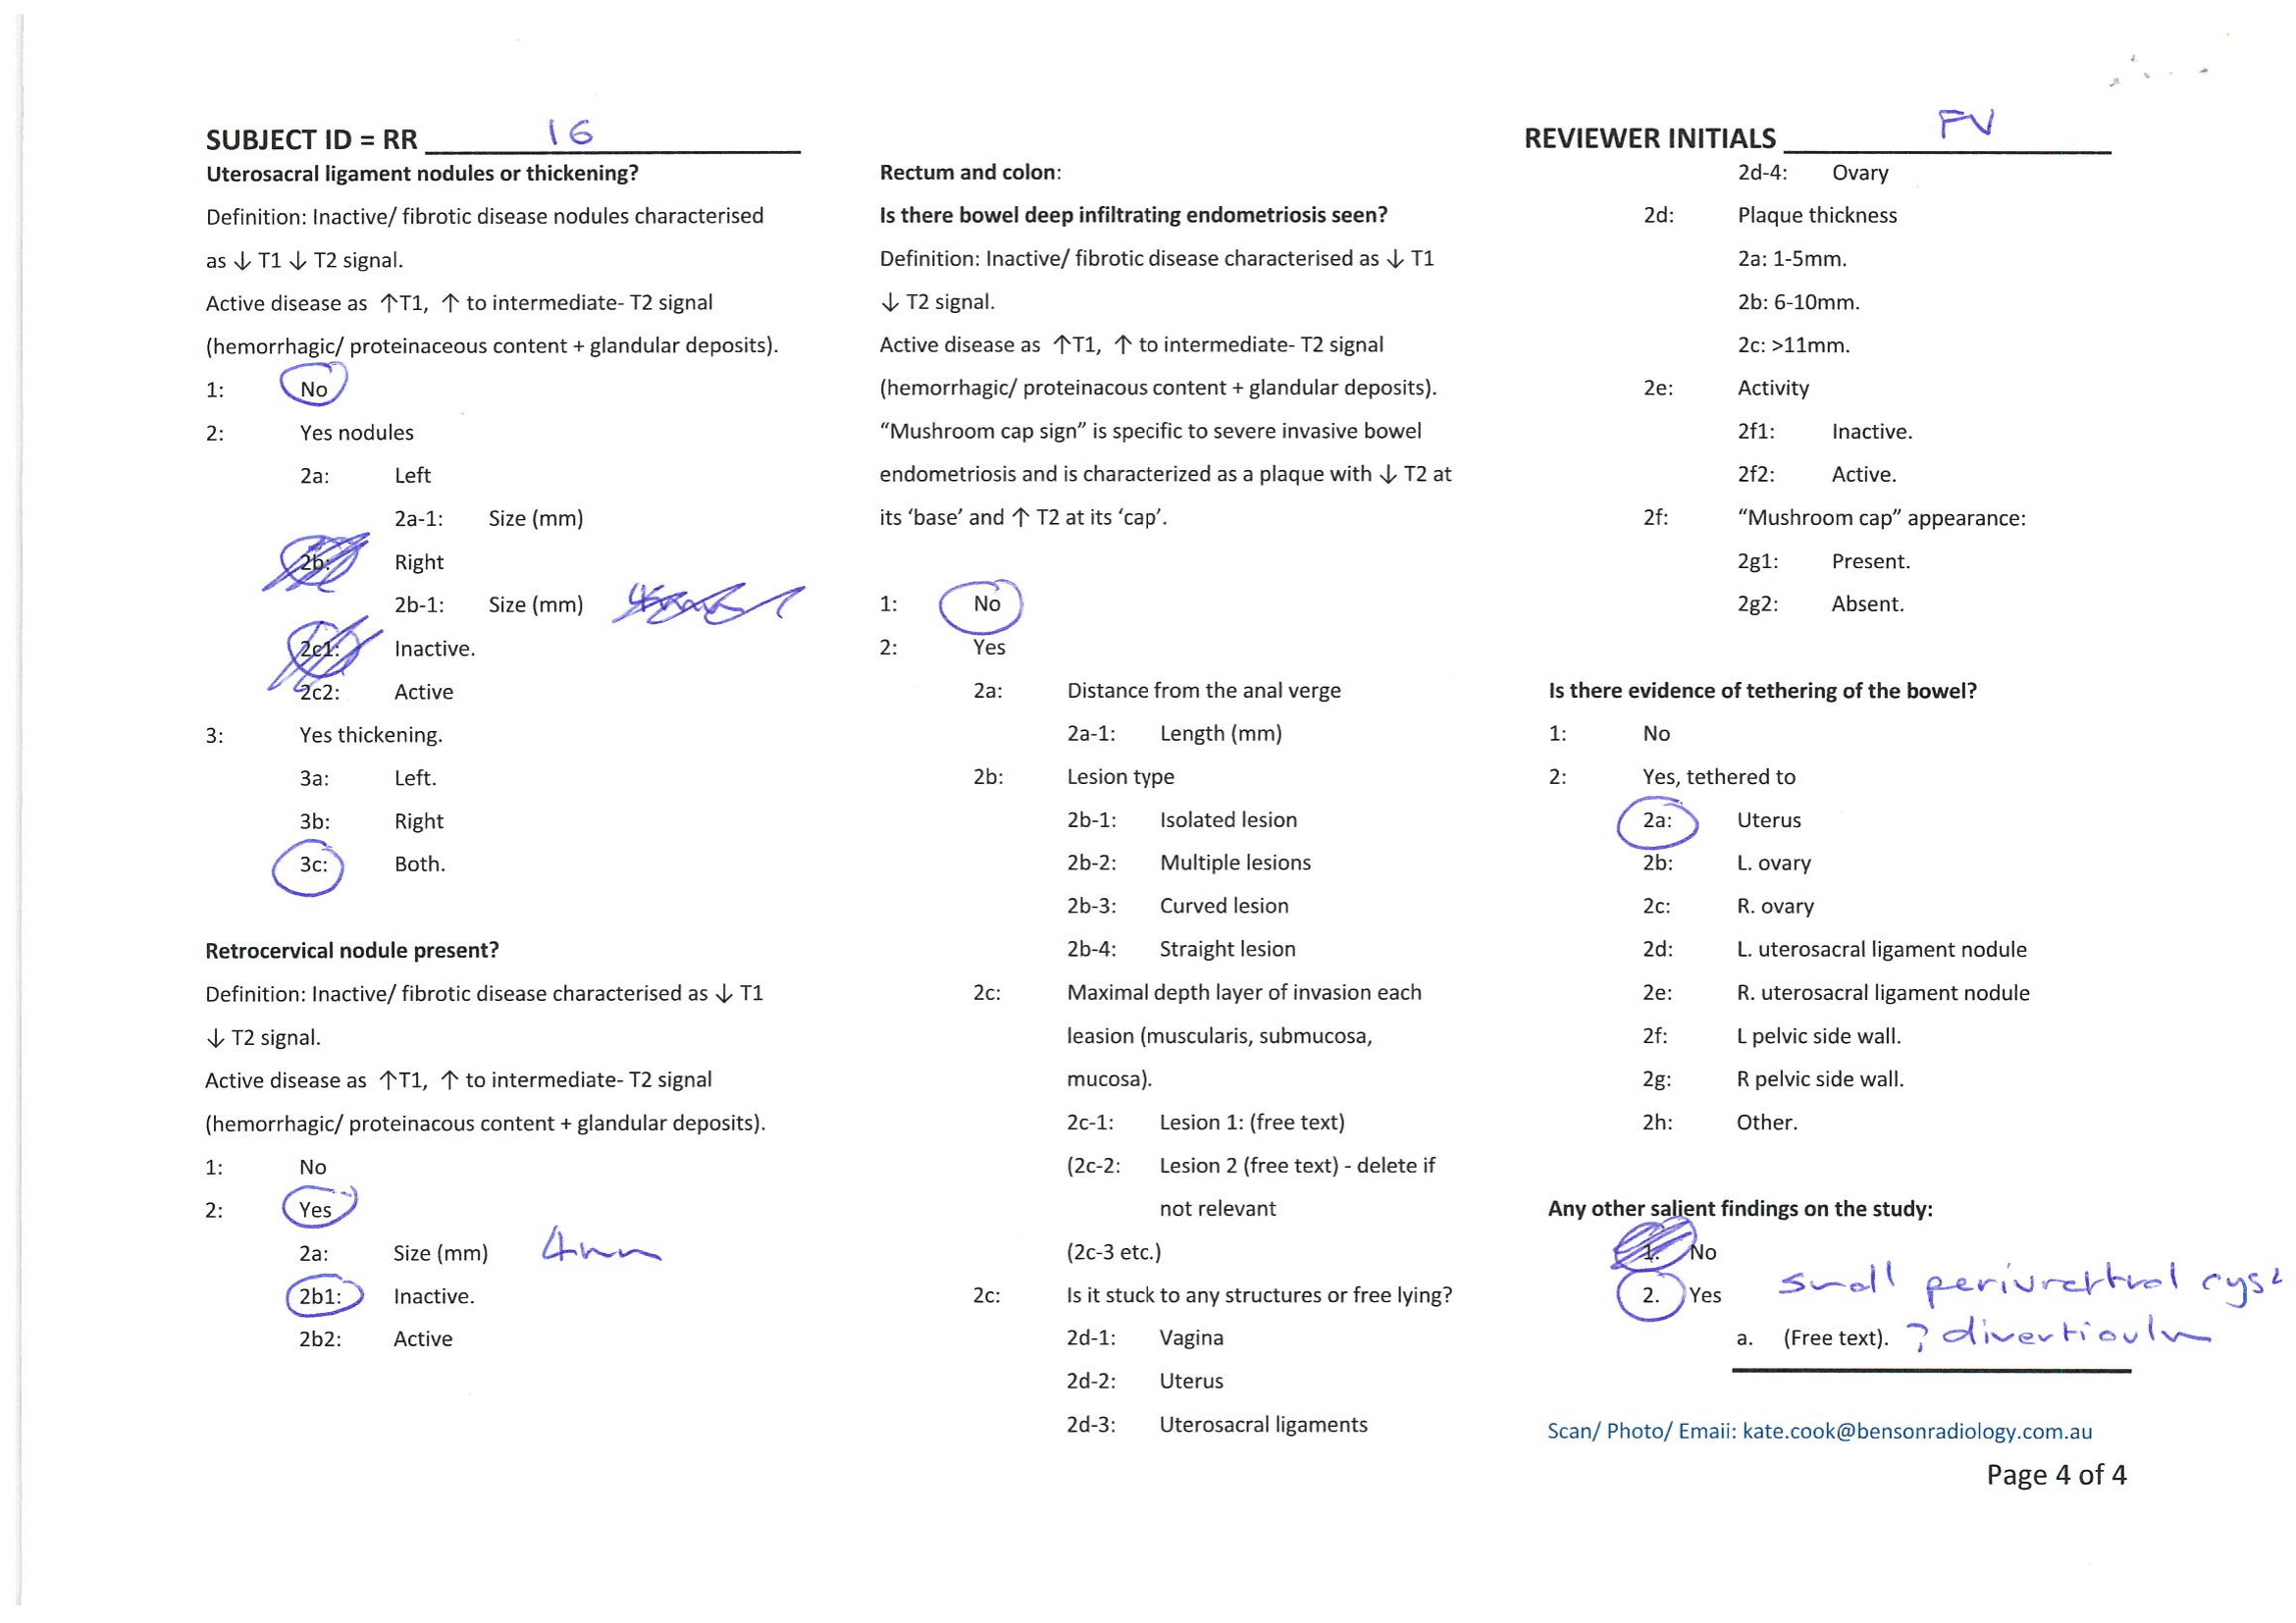 SUBJECT ID = RR 16
REVIEWER INITIALS FV
Uterosacral ligament nodules or thickening?
Definition: Inactive/ fibrotic disease nodules characterised
as ↓ T1 ↓ T2 signal.
Active disease as ↑T1, ↑ to intermediate- T2 signal
(hemorrhagic/ proteinaceous content + glandular deposits).
1: No
2: Yes nodules
2a: Left
2a-1: Size (mm)
2b: Right
2b-1: Size (mm)
2c1: Inactive.
2c2: Active
3: Yes thickening.
3a: Left.
3b: Right
3c: Both.
Retrocervical nodule present?
Definition: Inactive/ fibrotic disease characterised as ↓ T1
↓ T2 signal.
Active disease as ↑T1, ↑ to intermediate- T2 signal
(hemorrhagic/ proteinacous content + glandular deposits).
1: No
2: Yes
2a: Size (mm) 4mm
2b1: Inactive.
2b2: Active
Rectum and colon:
Is there bowel deep infiltrating endometriosis seen?
Definition: Inactive/ fibrotic disease characterised as ↓ T1
↓ T2 signal.
Active disease as ↑T1, ↑ to intermediate- T2 signal
(hemorrhagic/ proteinacous content + glandular deposits).
“Mushroom cap sign” is specific to severe invasive bowel
endometriosis and is characterized as a plaque with ↓ T2 at
its ‘base’ and ↑ T2 at its ‘cap’.
1: No
2: Yes
2a: Distance from the anal verge
2a-1: Length (mm)
2b: Lesion type
2b-1: Isolated lesion
2b-2: Multiple lesions
2b-3: Curved lesion
2b-4: Straight lesion
2c: Maximal depth layer of invasion each
leasion (muscularis, submucosa,
mucosa).
2c-1: Lesion 1: (free text)
(2c-2: Lesion 2 (free text) - delete if
not relevant
(2c-3 etc.)
2c: Is it stuck to any structures or free lying?
2d-1: Vagina
2d-2: Uterus
2d-3: Uterosacral ligaments
2d-4: Ovary
2d: Plaque thickness
2a: 1-5mm.
2b: 6-10mm.
2c: >11mm.
2e: Activity
2f1: Inactive.
2f2: Active.
2f: “Mushroom cap” appearance:
2g1: Present.
2g2: Absent.
Is there evidence of tethering of the bowel?
1: No
2: Yes, tethered to
2a: Uterus
2b: L. ovary
2c: R. ovary
2d: L. uterosacral ligament nodule
2e: R. uterosacral ligament nodule
2f: L pelvic side wall.
2g: R pelvic side wall.
2h: Other.
Any other salient findings on the study:
1. No
2. Yes small periurethral cyst
a. (Free text). ? diverticulum
Scan/ Photo/ Emaii: kate.cook@bensonradiology.com.au
Page 4 of 4